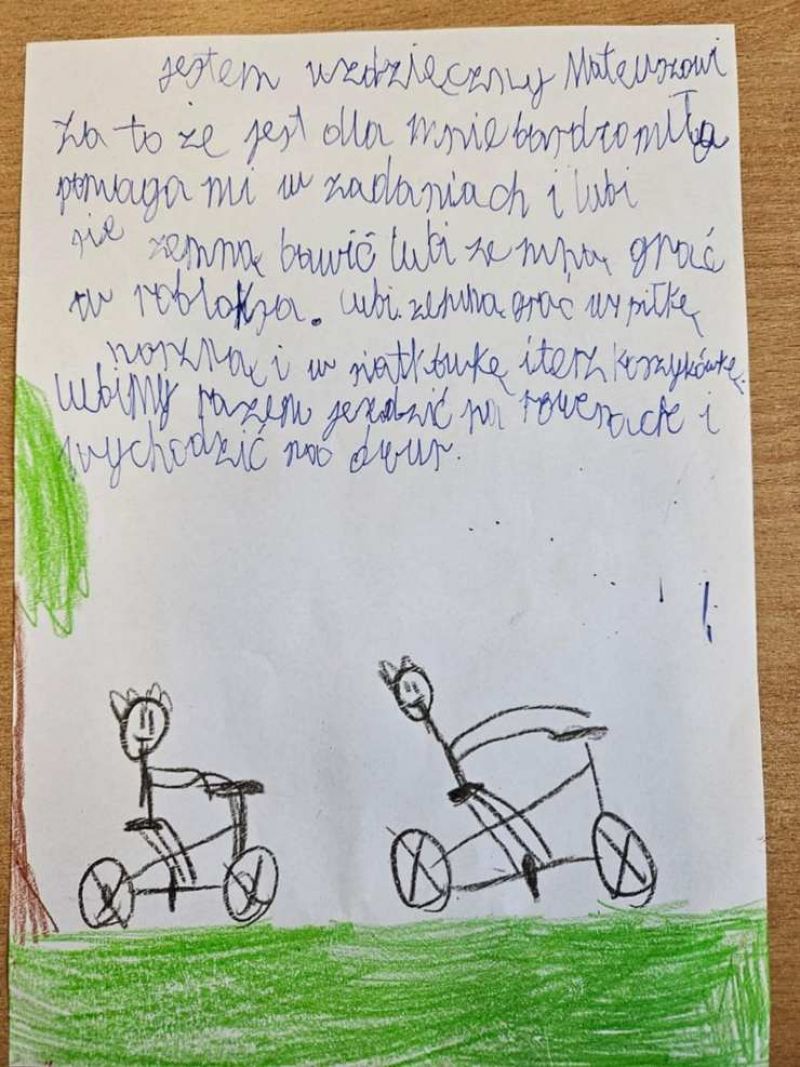 jestem wzdzięczny Mateuszowi
za to że jest dla mnie bardzo miły
pomaga mi w zadaniach i lubi
się zemną bawić lubi ze mną grać
w robloksa. lubi zemną grać w piłkę
norzną i w siatkówkę i terz koszykówkę.
lubimy razem jezdzić na rowerach i
wychodzić na dwur.